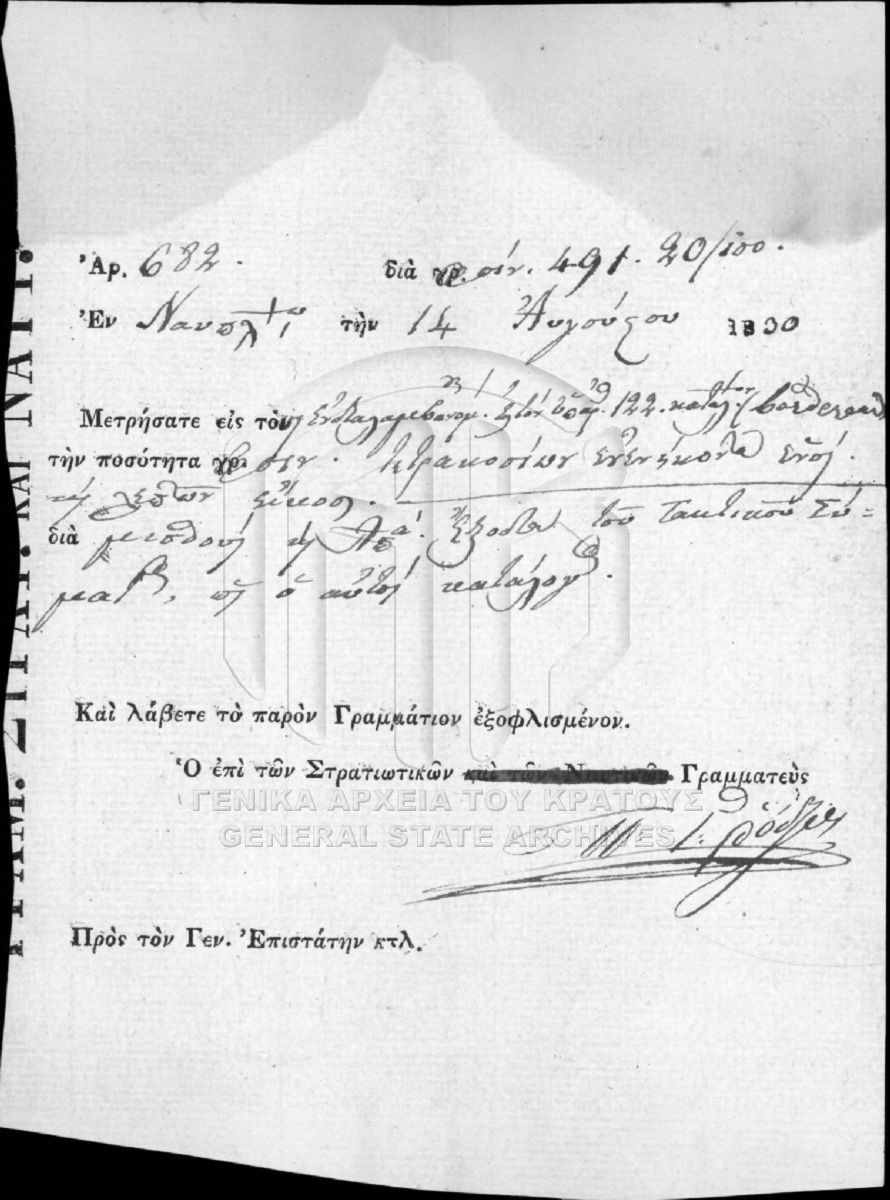 ΓΡΑΜ. ΣΤΡΑΤ. ΚΑΙ ΝΑΥΤ.
Ἀρ. 682. διὰ γρ. φοίν. 491. 20/100.
Ἐν Ναυπλίῳ τὴν 14 Αὐγούστου 1830
Μετρήσατε εἰς τοὺς 122. (borderau)
τὴν ποσότητα φοιν. τετρακοσίων ἐνενήκοντα ἑνὸς.
καὶ λεπτῶν εἴκοσι.
διὰ μισθοὺς καὶ ἔξοδα τοῦ Τακτικοῦ Σώ=
ματος, αὐτὸς κατάλογος.
Καὶ λάβετε τὸ παρὸν Γραμμάτιον ἐξοφλισμένον.
Ὁ ἐπὶ τῶν Στρατιωτικῶν καὶ τῶν Ναυτικῶν Γραμματεὺς
ΓΕΝΙΚΑ ΑΡΧΕΙΑ ΤΟΥ ΚΡΑΤΟΥΣ
GENERAL STATE ARCHIVES
Πρὸς τὸν Γεν. Ἐπιστάτην κτλ.